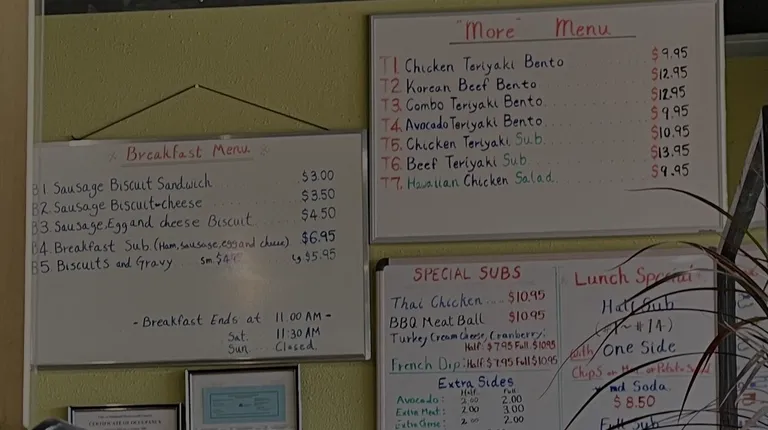 "More" Menu
T1. Chicken Teriyaki Bento $9.95
T2. Korean Beef Bento $12.95
T3. Combo Teriyaki Bento $12.95
T4. Avocado Teriyaki Bento $9.95
T5. Chicken Teriyaki Sub $10.95
T6. Beef Teriyaki Sub $13.95
T7. Hawaiian Chicken Salad $9.95
Breakfast Menu
B1 Sausage Biscuit Sandwich $3.00
B2. Sausage Biscuit-cheese $3.50
B3. Sausage, Egg and cheese Biscuit $4.50
B4. Breakfast Sub. (Ham, sausage, egg and cheese) $6.95
B5. Biscuits and Gravy Sm. Lg $5.95
- Breakfast Ends at 11.00 AM -
Sat. 11:30 AM
Sun. Closed.
SPECIAL SUBS
Thai Chicken $10.95
BBQ Meat Ball $10.95
Turkey Cream Cheese, Cranberry:
Half: $7.95 Full $10.95
French Dip: Half: $7.95 Full $10.95
Extra Sides
Half Full
Avocado: 2.00 2.00
Extra Meat: 2.00 3.00
Extra Chese: 2.00
Lunch Special
Half Sub
(#1~#14)
with One Side
Chips or or Potato
and Soda.
$8.50
Full Sub